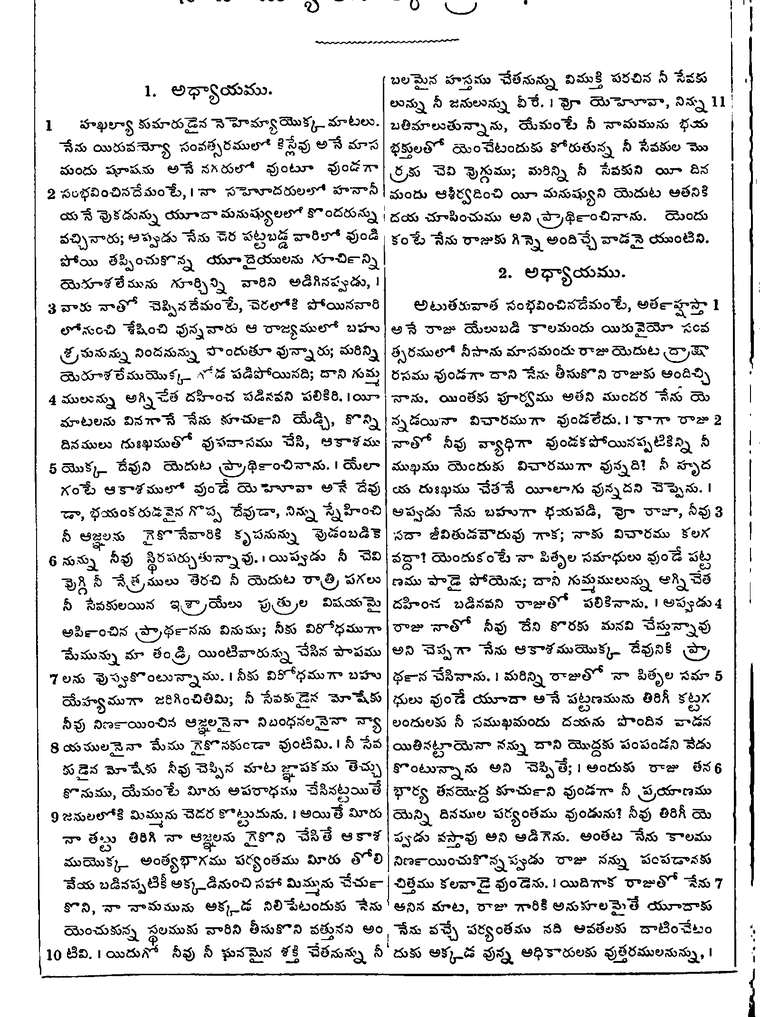 1. అధ్యాయము.
1 హఖల్యా కుమారుడైన నెహెమ్యాయొక్క మాటలు.
నేను యిరువయ్యో సంవత్సరములో కిస్లేవు అనే మాస
మందు షూషను అనే నగరులో వుంటూ వుండగా
2 సంభవించినదేమంటే, । నా సహోదరులలో హనానీ
యనే వొకడున్ను యూదా మనుష్యులలో కొందరున్ను
వచ్చినారు; అప్పుడు నేను చెర పట్టబడ్డ వారిలో వుండి
పోయి తప్పించుకొన్న యూదైయులను గూర్చిన్ని
యెరూశలేమును గూర్చిన్ని వారిని అడిగినప్పుడు, ।
3 వారు నాతో చెప్పినదేమంటే, చెరలోకి పోయినవారి
లోనుంచి శేషించి వున్నవారు ఆ రాజ్యములో బహు
శ్రమనున్ను నిందనున్ను పొందుతూ వున్నారు; మరిన్ని
యెరూశలేముయొక్క గోడ పడిపోయినది; దాని గుమ్మ
4 ములున్ను అగ్నిచేత దహించ పడినవని పలికిరి. । యీ
మాటలను వినగానే నేను కూర్చుని యేడ్చి, కొన్ని
దినములు దుఃఖముతో వుపవాసము చేసి, ఆకాశము
5 యొక్క దేవుని యెదుట ప్రార్థించినాను. । యేలా
గంటే ఆకాశములో వుండే యెహోవా అనే దేవు
డా, భయంకరుడవైన గొప్ప దేవుడా, నిన్ను స్నేహించి
నీ ఆజ్ఞలను గైకొనేవారికి కృపనున్ను వుడంబడికె
6 నున్ను నీవు స్థిరపర్చుతున్నావు. । యిప్పుడు నీ చెవి
వొగ్గి నీ నేత్రములు తెరచి నీ యెదుట రాత్రి పగలు
నీ సేవకులయిన ఇశ్రాయేలు పుత్రుల విషయమై
అర్పించిన ప్రార్థనను వినుము; నీకు విరోధముగా
మేమున్ను మా తండ్రి యింటివారున్ను చేసిన పాపము
7 లను వొప్పుకొంటున్నాము. । నీకు విరోధముగా బహు
యేహ్యముగా జరిగించితిమి; నీ సేవకుడైన మోషేకు
నీవు నిర్ణయించిన ఆజ్ఞలనైనా నిబంధనలనైనా న్యా
8 యములనైనా మేము గైకొనకుండా వుంటిమి. । నీ సేవ
కుడైన మోషేకు నీవు చెప్పిన మాట జ్ఞాపకము తెచ్చు
కొనుము, యేమంటే మీరు అపరాధము చేసినట్టయితే
9 జనులలోకి మిమ్మును చెదర కొట్టుదును. । అయితే మీరు
నా తట్టు తిరిగి నా ఆజ్ఞలను గైకొని చేసితే ఆకాశ
ముయొక్క అంత్యభాగము పర్యంతము మీరు తోలి
వేయ బడినప్పటికీ అక్కడినుంచి సహా మిమ్మును చేర్చు
కొని, నా నామమును అక్కడ నిలిపేటందుకు నేను
యెంచుకున్న స్థలముకు వారిని తీసుకొని వత్తునని అం
10 టివి. । యిదుగో నీవు నీ ఘనమైన శక్తి చేతనున్ను నీ
బలమైన హస్తము చేతనున్ను విముక్తి పరచిన నీ సేవకు
లున్ను నీ జనులున్ను వీరే. । వో యెహోవా, నిన్ను 11
బతిమాలుతున్నాను, యేమంటే నీ నామమును భయ
భక్తులతో యెంచేటందుకు కోరుతున్న నీ సేవకుల మొ
ర్రకు చెవి వొగ్గుము; మరిన్ని నీ సేవకుని యీ దిన
మందు ఆశీర్వదించి యీ మనుష్యుని యెదుట ఆతనికి
దయ చూపించుము అని ప్రార్థించినాను. యెందు
కంటే నేను రాజుకు గిన్నె అందిచ్చే వాడనై యుంటిని.
2. అధ్యాయము.
అటుతరువాత సంభవించినదేమంటే, అర్తాహ్షస్తా 1
అనే రాజు యేలుబడి కాలమందు యిరువైయో సంవ
త్సరములో నీసాను మాసమందు రాజు యెదుట ద్రాక్షా
రసము వుండగా దాని నేను తీసుకొని రాజుకు అందిచ్చి
నాను. యింతకు పూర్వము అతని ముందర నేను యె
న్నడయినా విచారముగా వుండలేదు. । కాగా రాజు 2
నాతో నీవు వ్యాధిగా వుండకపోయినప్పటికిన్ని నీ
ముఖము యెందుకు విచారముగా వున్నది? నీ హృద
య దుఃఖము చేతనే యీలాగు వున్నదని చెప్పెను. ।
అప్పుడు నేను బహుగా భయపడి, వో రాజా, నీవు 3
సదా జీవితుడవౌదువు గాక; నాకు విచారము కలగ
వద్దా? యెందుకంటే నా పితృల సమాధులు వుండే పట్ట
ణము పాడై పోయెను; దాని గుమ్మములున్ను అగ్నిచేత
దహించ బడినవని రాజుతో పలికినాను. । అప్పుడు 4
రాజు నాతో నీవు దేని కొరకు మనవి చేస్తున్నావు
అని చెప్పగా నేను ఆకాశముయొక్క దేవునికి ప్రా
ర్థన చేసినాను. । మరిన్ని రాజుతో నా పితృల సమా 5
ధులు వుండే యూదా అనే పట్టణమును తిరిగీ కట్టగ
లందులకు నీ సముఖమందు దయను పొందిన వాడన
యితినట్టాయెనా నన్ను దాని యొద్దకు పంపండని వేడు
కొంటున్నాను అని చెప్పితే; । అందుకు రాజు తన 6
భార్య తనయొద్ద కూర్చుని వుండగా నీ ప్రయాణము
యెన్ని దినముల పర్యంతము వుండును? నీవు తిరిగీ యె
ప్పుడు వస్తావు అని అడిగెను. అంతట నేను కాలము
నిర్ణయించుకొన్నప్పుడు రాజు నన్ను పంపడానకు
చిత్తము కలవాడై వుండెను. । యిదిగాక రాజుతో నేను 7
అనిన మాట, రాజు గారికి అనుకూలమైతే యూదాకు
నేను వచ్చే పర్యంతము నది అవతలకు దాటించేటం
దుకు అక్కడ వున్న అధికారులకు వుత్తరములనున్ను, ।